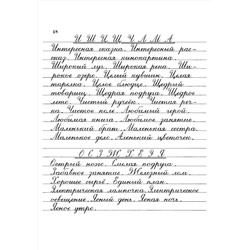 И Ш И Щ Ч Л М А
Интересная сказка. Интересный рас-
сказ. Интересная кинокартина.
Широкий луг. Широкая река. Ши-
рокое озеро. Целый кувшин. Целая
тарелка. Целое блюдце. Щедрый
товарищ. Щедрая подруга. Щедрое
лето. Чистый ручеёк. Чистая реч-
ка. Чистое поле. Любимый герой.
Любимая книга. Любимое занятие.
Маленький брат. Маленькая сестра.
Маленькое дело. Алюминий цветочек.
О С З Э Ж Х Е Я
Острый нож. Смелая подруга.
Забавное занятие. Железный лом.
Хорошее сырьё. Единый план.
Электрическая лампочка. Электрическое
освещение. Ясный день. Ясная ночь.
Ясное утро.